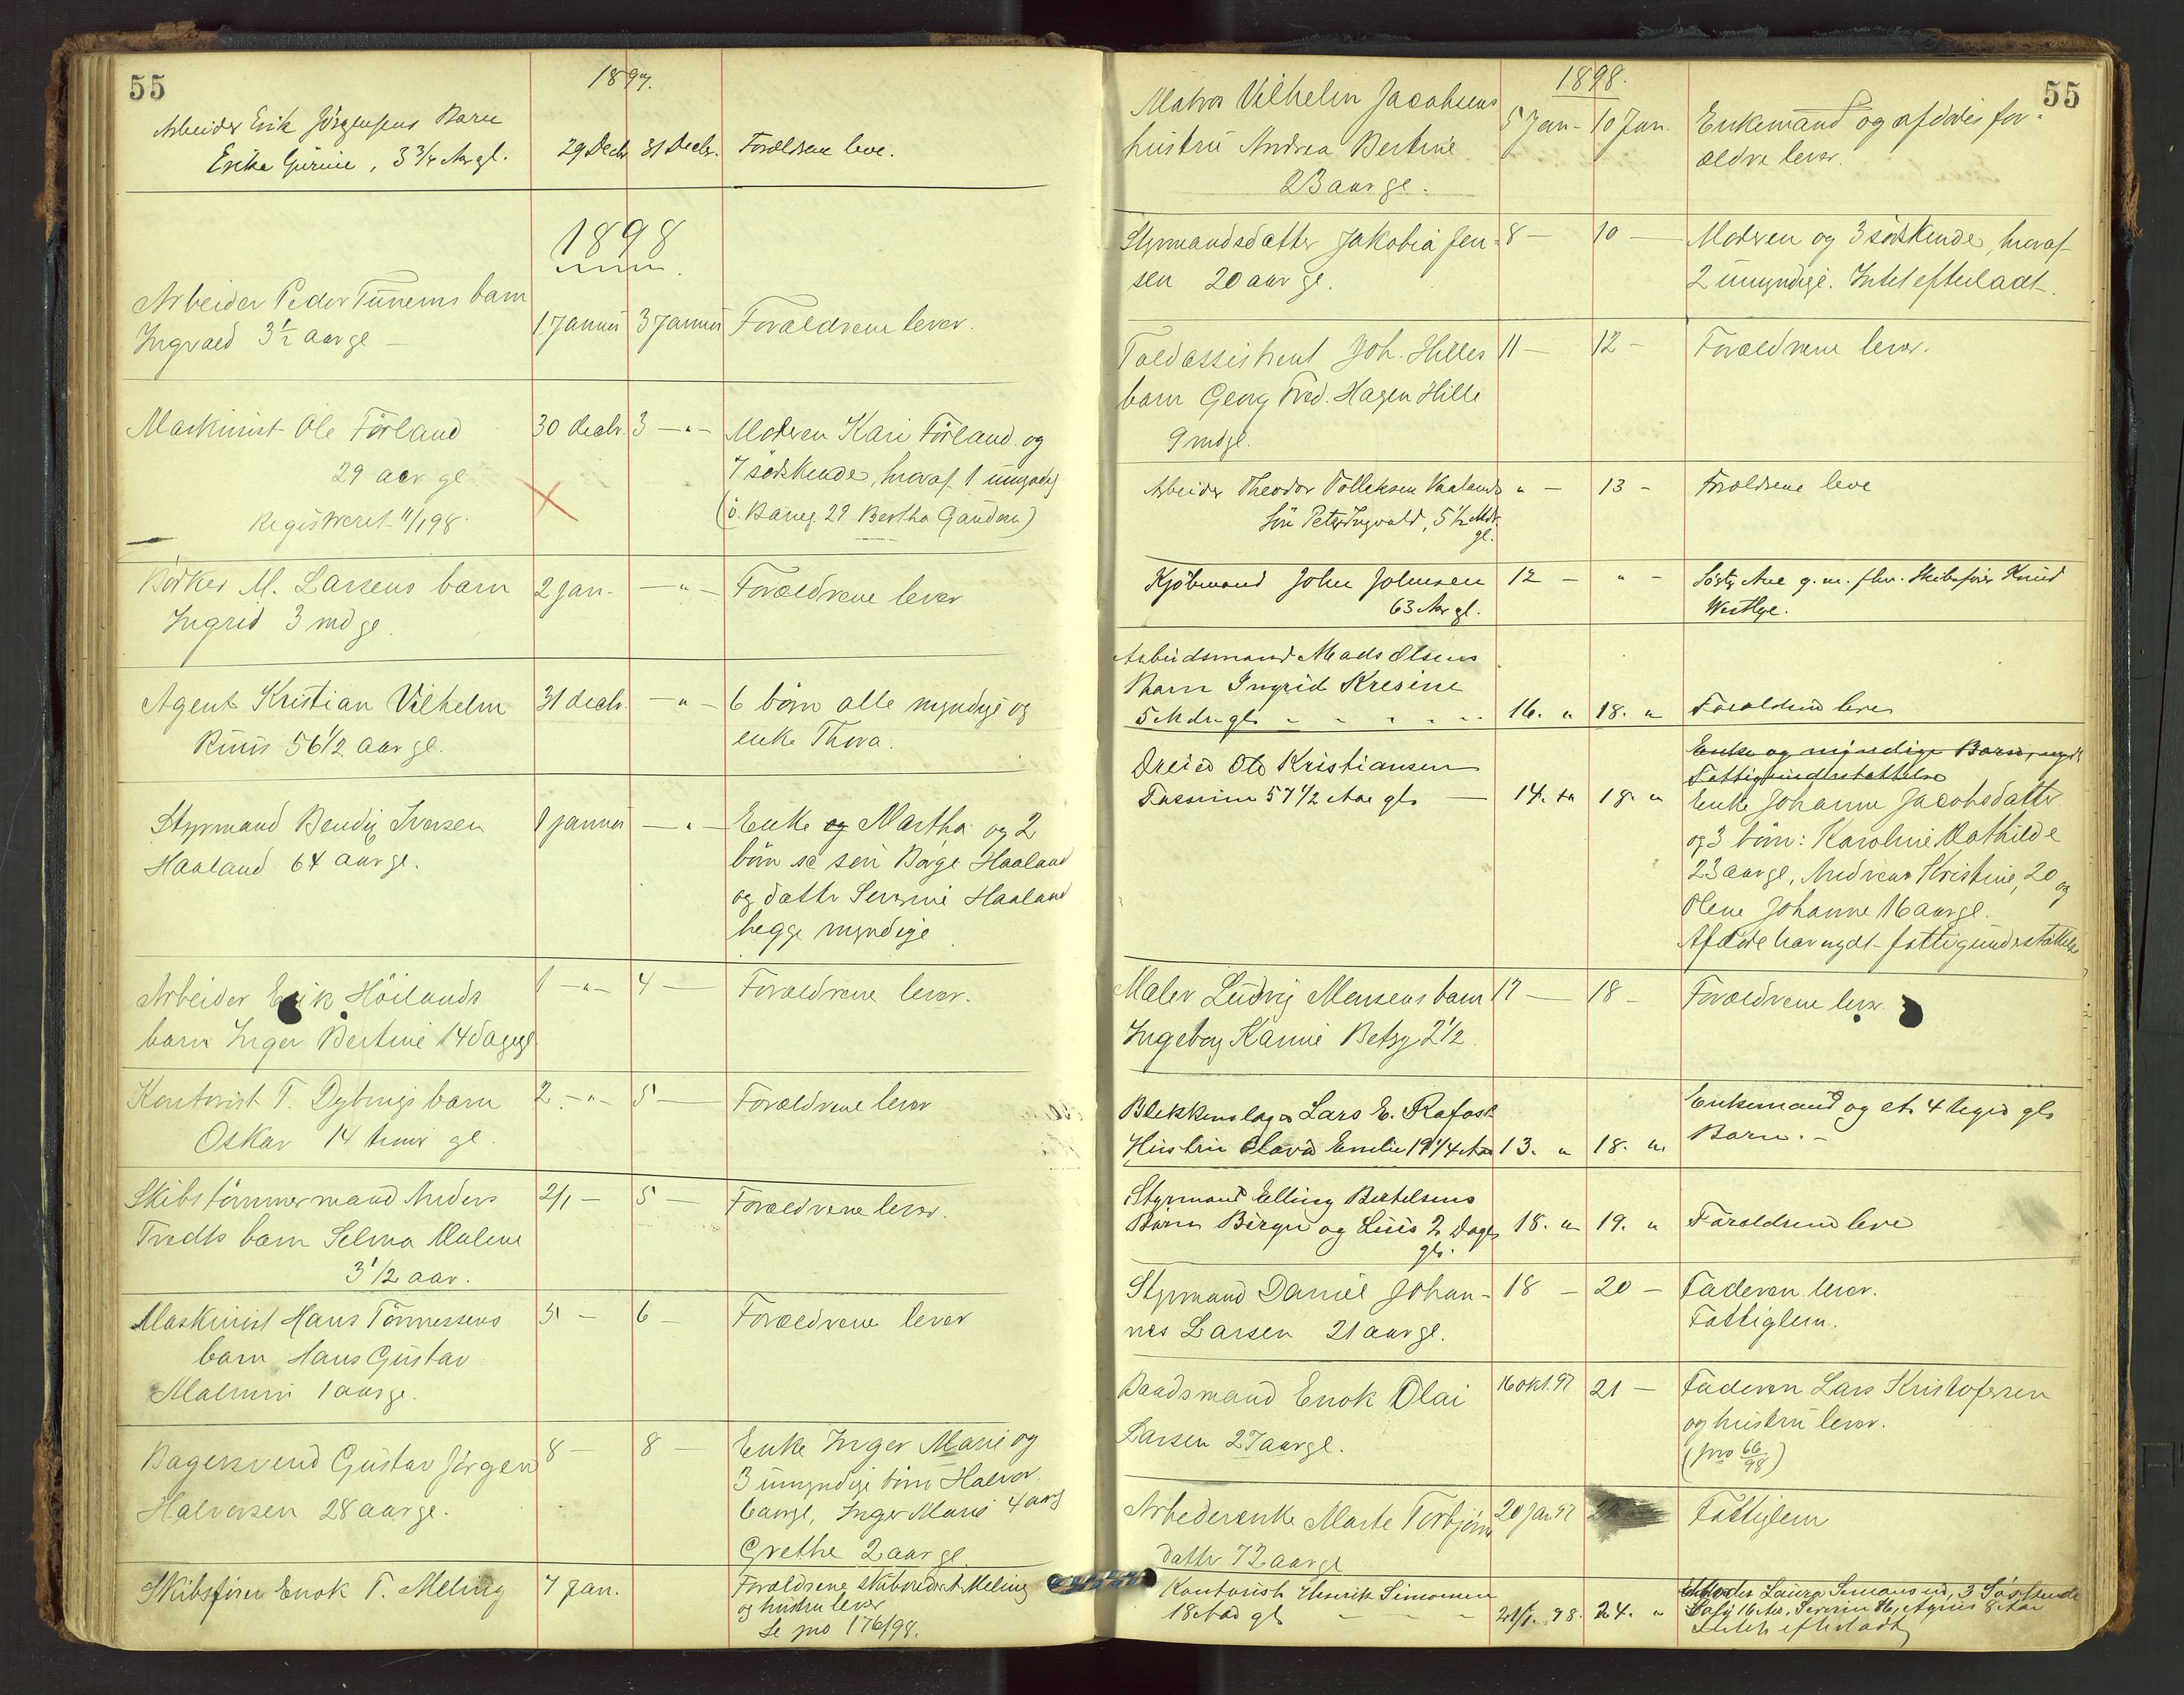 55
1897.
Arbeider Erik Jörgensens Barn
Erika Gurine, 3 3/4 Aar gl.
29 Decb. 31 Decbr. Forældrene leve.
1898
Arbeider Peder Tunems barn
Ingvald 3 1/2 aar gl
1 Januar 3 Januar Forældrene lever.
Maskinist Ole Förland
29 aar gl
Registreret 11/1 98.
30 decbr. 3 - " -
Moderen Kari Förland og
7 södskende, hvoraf 1 umyndig
Bertha Gaudern)
Bödker M. Larsens barn
Ingrid 3 md gl.
2 Jan. - " - Forældrene lever
Agent Kristian Vilhelm
56 1/2 aar gl.
31 decbr. - " -
6 börn alle myndige og
enke Thora.
Styrmand Bendix Iversen
Haaland 64 aar gl.
1 januar - " -
Enke og Martha og 2
börn se sön Börge Haaland
og datter Severine Haaland
begge myndige
Arbeider Erik Höilands
barn Inger Bertine 14 dage gl
1 - " - 4 - Forældrene lever.
Kontorist T. Dybings barn
Oskar 14 timer gl.
2 - " - 5 - Forældrene lever
Skibstömmermand Anders
Tvedts barn Selma Malene
3 1/2 aar.
2/1 - 5 - Forældrene lever.
Maskinist Hans Tönnessens
barn Hans Gustav
Malmin 1 aar gl.
5 - 6 - Forældrene lever
Bagersvend Gustav Jörgen
Halvorsen 28 aar gl.
8 - 8 -
Enke Inger Marie og
3 umyndige börn Halvor
6 aar gl, Inger Marie 4 aar g
Grethe 2 aar gl.
Skibsförer Enok T. Meling
7 Jan.
Forældrene Meling
og hustru lever
Se jno 176/98.
55
1898.
Matros Vilhelm Jacobsens
hustru Andrea Bertine
23 aar gl.
5 Jan - 10 Jan.
Enkemand og afdödes for-
ældre lever.
Styrmandsdatter Jakobia Jen-
sen 20 aar gl.
8 - 10 -
Moderen og 3 södskende, hvoraf
2 umyndige. Intet efterladt.
Toldassistent Joh. Hilles
barn Georg Fred. Hagen Hille
9 md gl.
11 - 12 - Forældrene lever.
Arbeider Theodor Tolleksen Vaalands
Sön Peter Ingvald, 5 1/2 Mdr.
gl.
" - 13 - Forældrene leve
Kjöbmand John Johnsen
63 Aar gl.
12 - " -
Söster Ane g. m. fhv. Skibsförer Knud
Westlye.
Arbeidsmand Mads Olsens
Barn Ingrid Kresine
5 Mdr. gl.
16. " 18. " Forældrene lever
Dreier Ole Kristiansen
57 1/2 Aar gl.
14. " 18. "
Enke og myndige Börn, nydt
Fattigunderstöttelse
Enke Johanne Jacobsdatter
og 3 börn: Karoline Mathilde
23 aar gl, Andrea Kristine, 20 og
Olene Johanne 16 aar gl.
Afdöde har nydt fattigunderstöttelse
Maler Ludvig Monsens barn
Ingeborg Kamie Betzy 2 1/2.
17 - 18 - Forældrene lever.
Blikkenslager Lars E. Rafos
Hustru Olava Emilie 19 1/4 Aar
13. " 18. "
Enkemand og et 4 Uger gl.
Barn.
Styrmand Elling Bertelsens
Börn Birger og Liuis 2 Dage
gl.
18. " 19. " Forældrene leve
Styrmand Daniel Johan-
nes Larsen 21 aar gl.
18 - 20 -
Faderen lever.
Fattiglem.
Baadsmand Enok Olai
Larsen 27 aar gl.
16 okt. 97 21 -
Faderen Lars Kristofersen
og hustru lever.
(jno 66/98)
Arbeiderenke Marte Torbjörns
datter 72 aar gl
20 Jan 97 Fattiglem
Kontorist Henrik Simonsen
18 Aar gl
21/1. 98. 24. "
Moder Laura Simonsen, 3 Söskende
16 Aar, Severin 16, Agnes 8 Aar
Intet efterladt